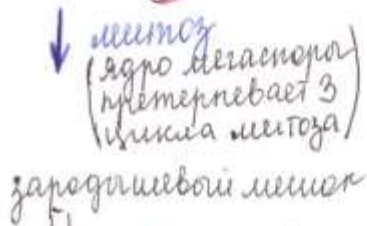 митоз
(ядро мегаспоры
претерпевает 3
цикла митоза)
зародышевый мешок